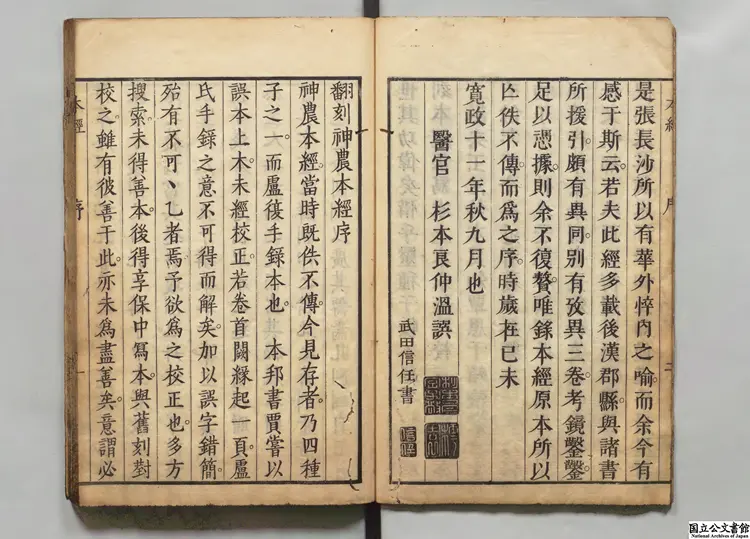 是張長沙所以有華外悴內之喻。而余今有
感于斯云。若夫此經多載後漢郡縣。與諸書
所援引。頗有異同。別有攷異三卷。考鏡鑿鑿。
足以憑據。則余不復贅。唯錄本經原本所以
亾佚不傳。而爲之序。時歲在己未
寬政十一年秋九月也
醫官 杉本良仲溫
武田信任書
翻刻神農本經序
神農本經。當時既佚不傳。今見存者。乃四種
子之一。而盧復手錄本也。 本邦書賈嘗以
誤本上木。未經校正。若卷首闕緣起一頁。盧
氏手錄之意。不可得而解矣。加以誤字錯簡。
殆有不可丶乙者焉。予欲爲之校正也。多方
搜索。未得善本。後得享保中寫本。與舊刻對
校之。雖有彼善于此。亦未爲盡善矣。意謂必
本經 序 一
国立公文書館
National Archives of Japan